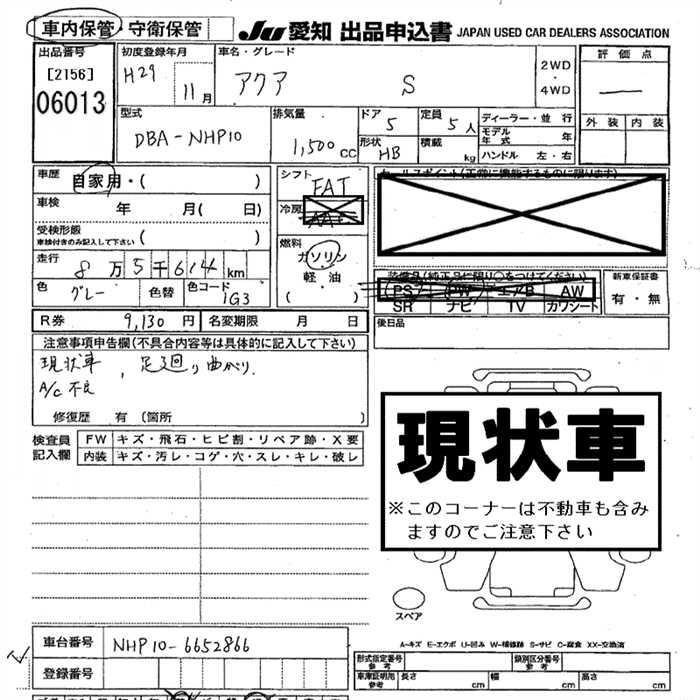 車内保管・守衛保管
JU 愛知 出品申込書 JAPAN USED CAR DEALERS ASSOCIATION
出品番号
[2156]
06013
初度登録年月
H29 11月
車名・グレード
アクア S
2WD
・
4WD
評価点
—
外装 内装
型式
DBA-NHP10
排気量
1,500 CC
ドア
5
形状
HB
定員
5 人
積載
kg
ディーラー・並行
モデル年式 年
ハンドル 左・右
車歴
自家用・( )
車検
年 月( 日)
受検形態
車検付きのみ記入して下さい ( )
走行
8万5千614 km
色
グレー
色替
色コード
1G3
シフト
FAT
冷房
AAC
燃料
ガソリン
軽油
( )
セールスポイント(正常に機能するものに限ります)
装備品(純正品に限り○をつけてください)
PS PW エアB AW
SR ナビ TV カワシート
新車保証書
有・無
R券 9,130 円
名変期限 月 日
後日品
注意事項申告欄(不具合内容等は具体的に記入して下さい)
現状車 , 足廻り曲がり.
A/C 不良
修復歴 有 (箇所 )
検査員
記入欄
FW キズ・飛石・ヒビ割・リペア跡・X要
内装 キズ・汚レ・コゲ・穴・スレ・キレ・破レ
現状車
※このコーナーは不動車も含み
ますのでご注意下さい
スペア
A-キズ E-エクボ U-凹み W-補修跡 S-サビ C-腐食 XX-交換済
車台番号
NHP10-6652866
登録番号
形式指定番号
参考
類別区分番号
参考
車庫証明用
参考
長さ cm 幅 cm 高さ cm